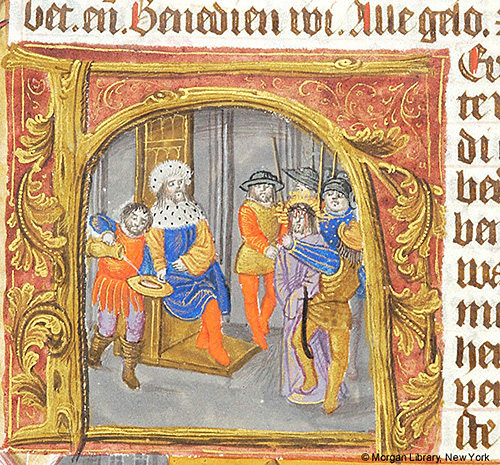 bet. eñ. Benedien wi. Alle gelo.
te
di
bei
ber
we
mi
hei
ver
ste
© Morgan Library, New York